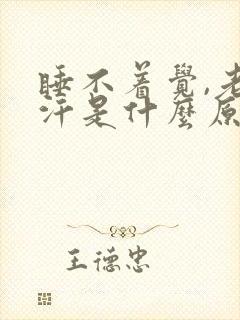 睡不着覺,老
汗是什麼原
王德忠